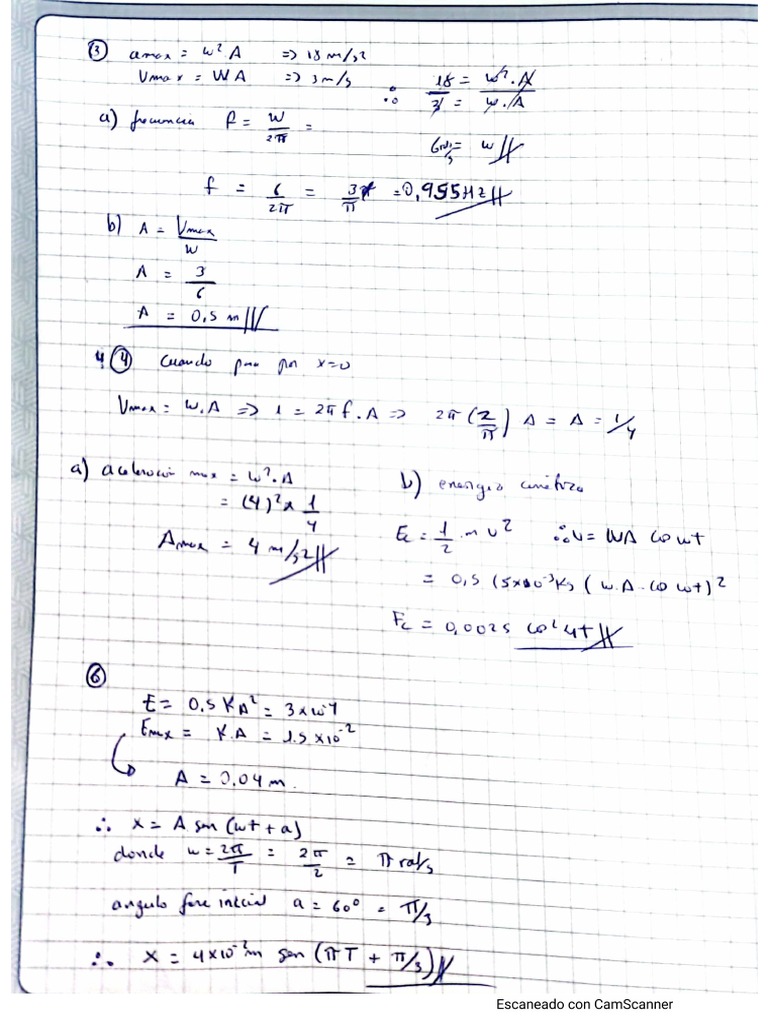 ③ amax = w².A => 18 m/s²
Vmax = WA => 3 m/s
∴ 18/3 = w².A/w.A
a) frecuencia f = w/2π =
6 rad/s = w
f = 6/2π = 3/π = 0,955 Hz
b) A = Vmax/w
A = 3/6
A = 0,5 m
④ Cuando pasa por x=0
Vmax = w.A => 1 = 2πf.A => 2π(2/π) A = A = 1/4
a) aceleración max = w².A
= (4)² x 1/4
Amax = 4 m/s²
b) energia cinética
Ec = 1/2 m v² ∴ v = WA co wt
= 0,5 (5x10⁻³Kg (w.A.co wt)²
Ec = 0,0025 co² 4t
⑥
E = 0.5 KA² = 3x10⁻⁴
Fmax = K.A = 1.5 x10⁻²
A = 0.04 m.
∴ x = A sen (wt + a)
donde w = 2π/T = 2π/2 = π rad/s
angulo fase inicial a = 60° = π/3
∴ x = 4x10⁻²m sen (πT + π/3)
Escaneado con CamScanner